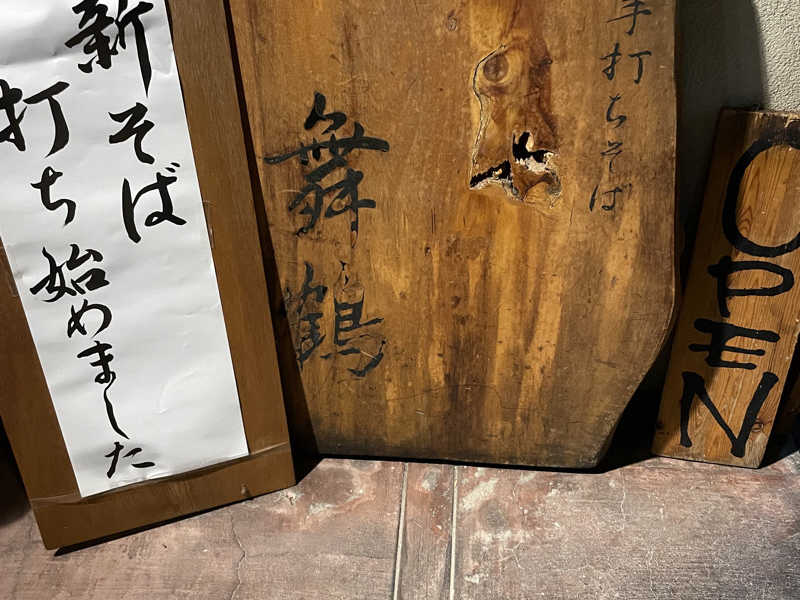 新そば
打ち始めました
手打ちそば
舞鶴
OPEN